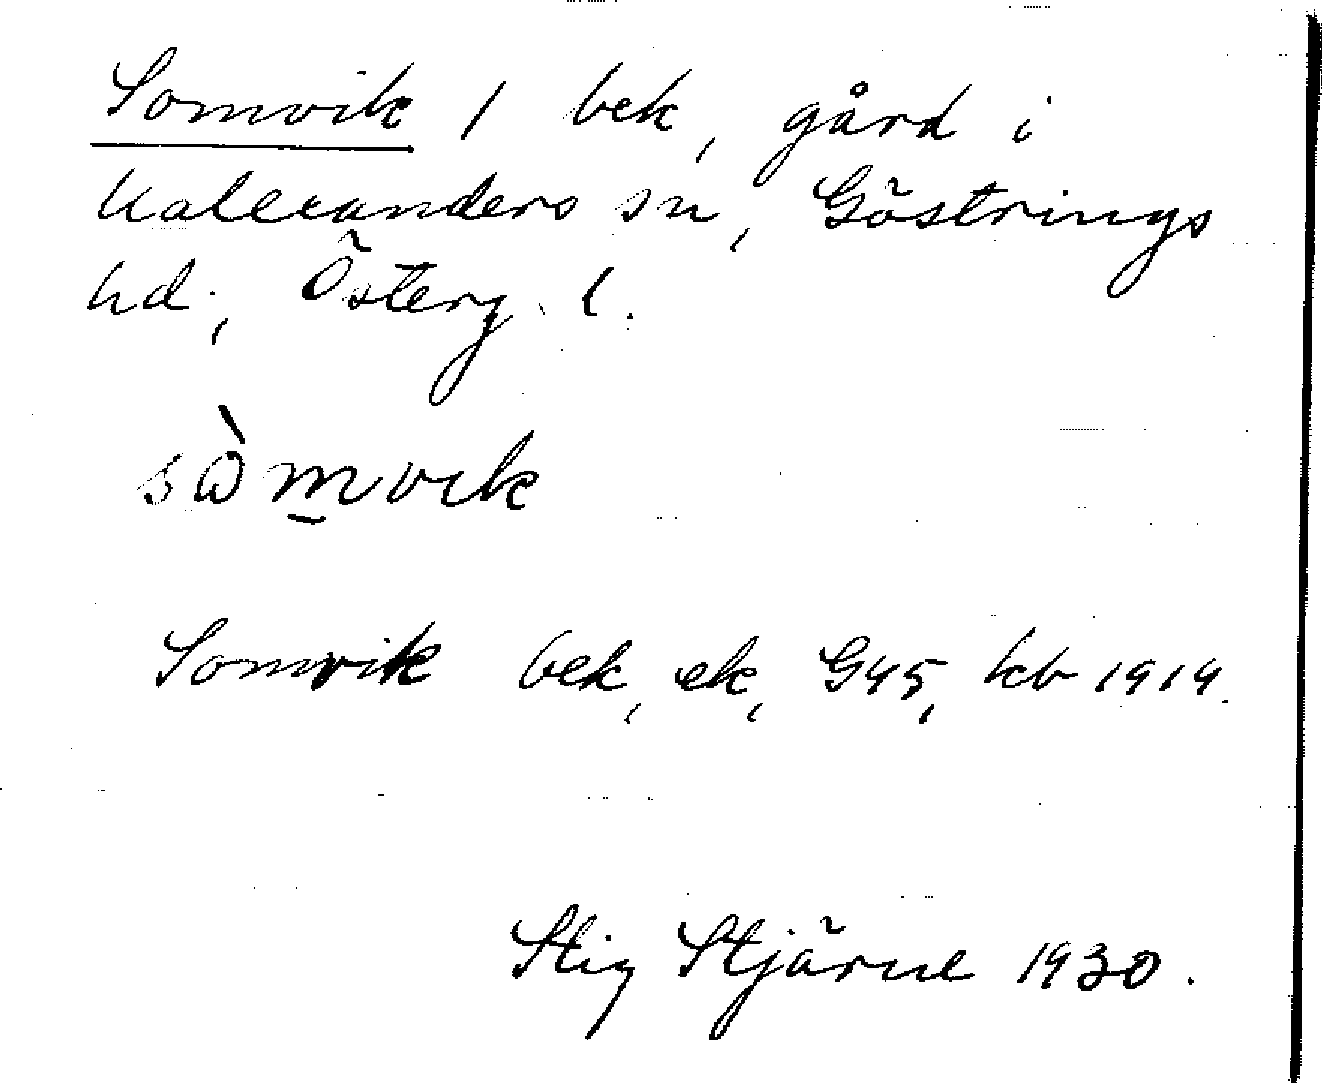 Somvik / bek, gård i
V alexanders sn, Göstrings
hd., Österg. l.
sòm̲vik
Somvik bek, ek, G45, kb 1919.
Stig Stjärne 1930.